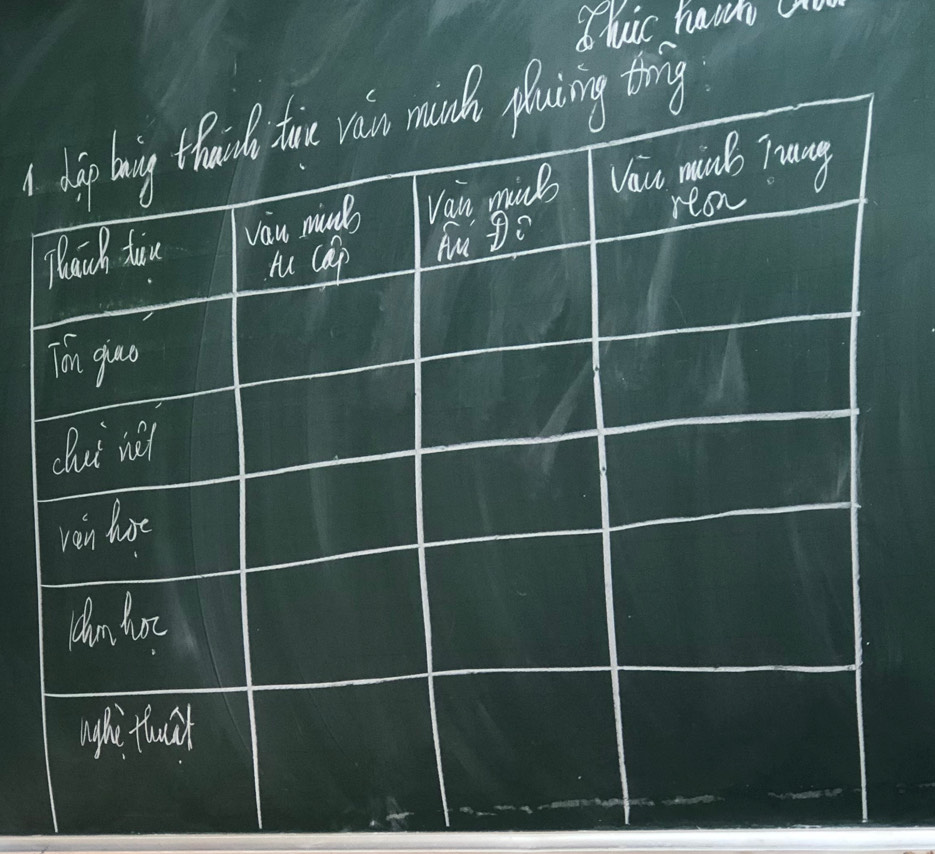 Thực hành
1. Lập bảng thành tựu văn minh phương đông:
Thành tựu
Văn minh
Ai Cập
Văn minh
Ấn Độ
Văn minh Trung
Hoa
Tôn giáo
chữ viết
văn học
khoa học
nghệ thuật